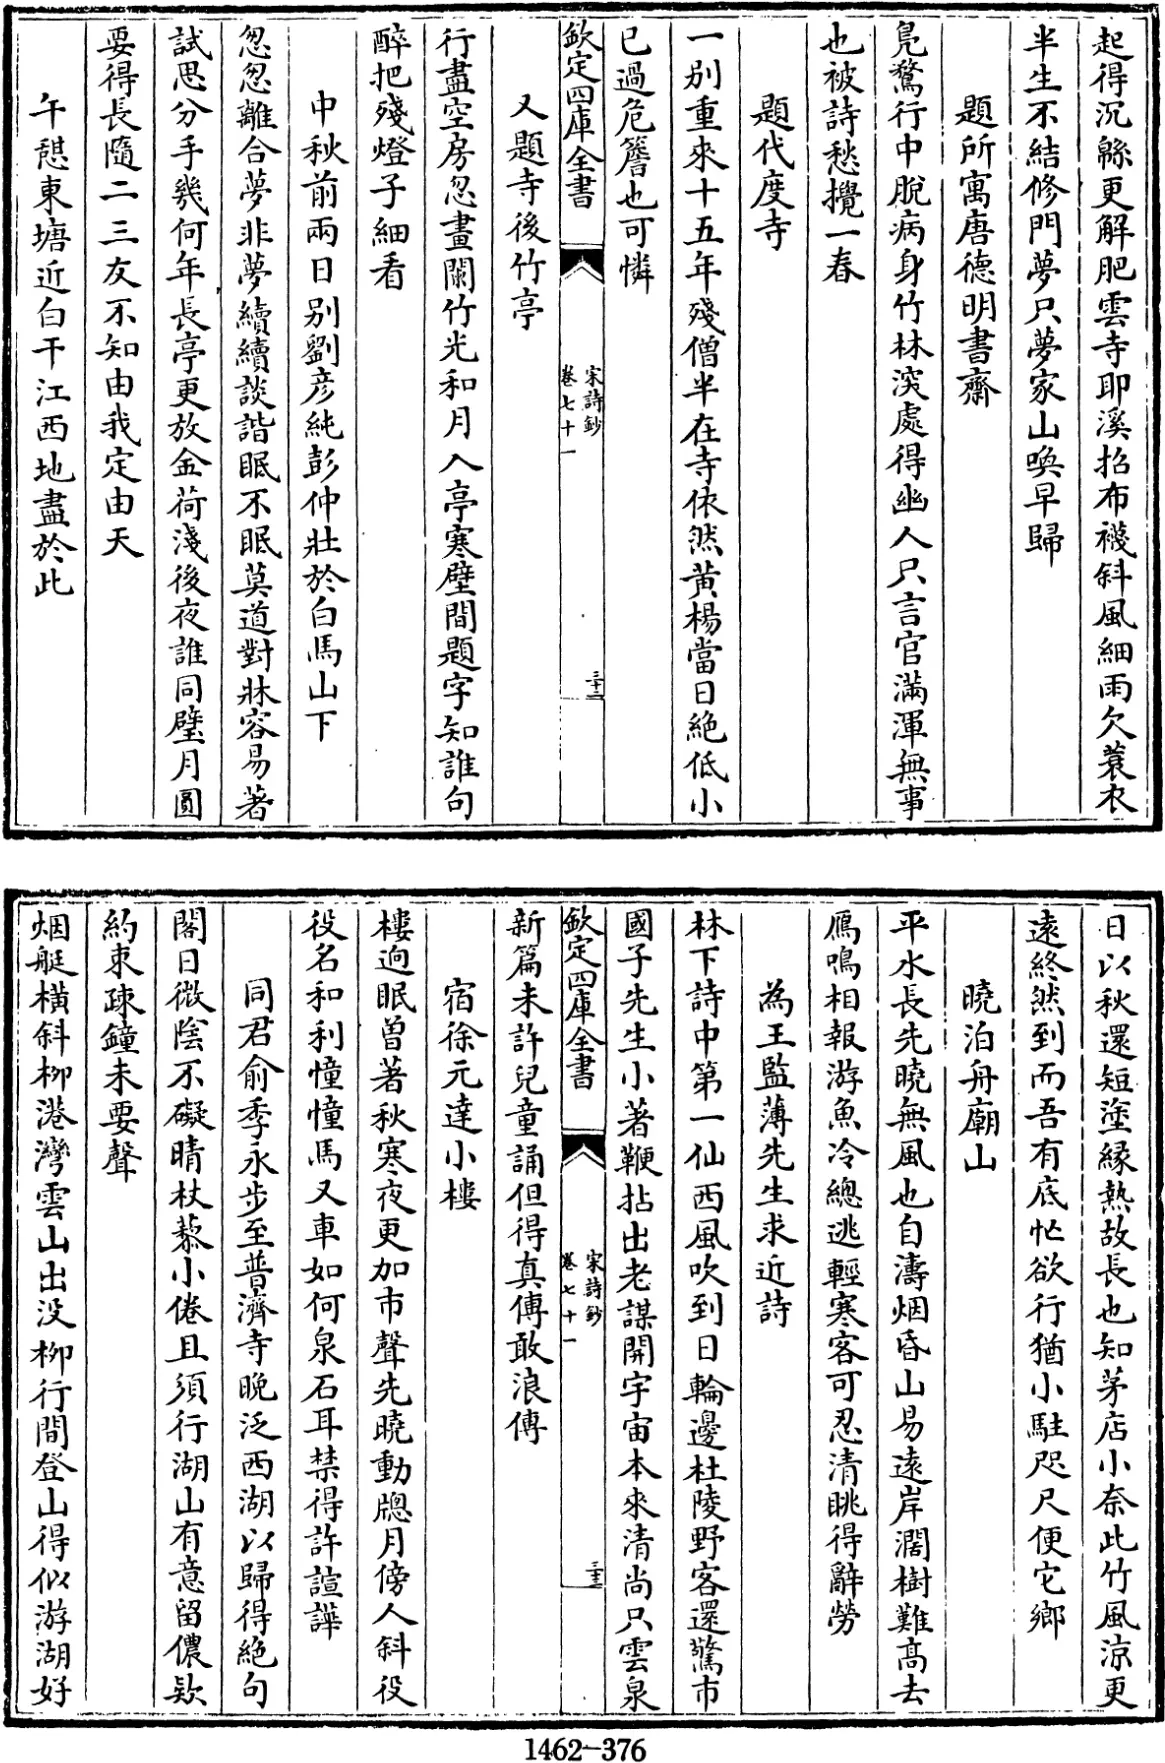 起得沉綿更解肥雲寺耶溪招布襪斜風細雨欠蓑衣
半生不結修門夢只夢家山喚早歸
題所寓唐德明書齋
鳬鶩行中脫病身竹林深處得幽人只言官滿渾無事
也被詩愁攪一春
題代度寺
一別重來十五年殘僧半在寺依然黃楊當日絶低小
已過危簷也可憐
欽定四庫全書
宋詩鈔
卷七十一
三十二
又題寺後竹亭
行盡空房忽畫闌竹光和月入亭寒壁間題字知誰句
醉把殘燈子細看
中秋前兩日別劉彦純彭仲壯於白馬山下
忽忽離合夢非夢續續談諧眠不眠莫道對牀容易著
試思分手幾何年長亭更放金荷淺後夜誰同璧月圓
要得長隨二三友不知由我定由天
午憩東塘近白干江西地盡於此
日以秋還短塗緣熱故長也知茅店小奈此竹風涼更
遠終然到而吾有底忙欲行猶小駐咫尺便它鄉
曉泊舟廟山
平水長先曉無風也自濤烟昏山易遠岸濶樹難髙去
鴈鳴相報游魚冷總逃輕寒客可忍清眺得辭勞
為王監薄先生求近詩
林下詩中第一仙西風吹到日輪邊杜陵野客還驚市
國子先生小著鞭拈出老謀開宇宙本來清尚只雲泉
欽定四庫全書
宋詩鈔
卷七十一
三十三
新篇未許兒童誦但得真傳敢浪傳
宿徐元達小樓
樓迥眠曾著秋寒夜更加市聲先曉動牕月傍人斜役
役名和利憧憧馬又車如何泉石耳禁得許諠譁
同君俞季永步至普濟寺晚泛西湖以歸得絶句
閣日微陰不礙晴杖藜小倦且須行湖山有意留儂欵
約束疎鐘未要聲
烟艇橫斜柳港灣雲山出没柳行間登山得似游湖好
1462-376